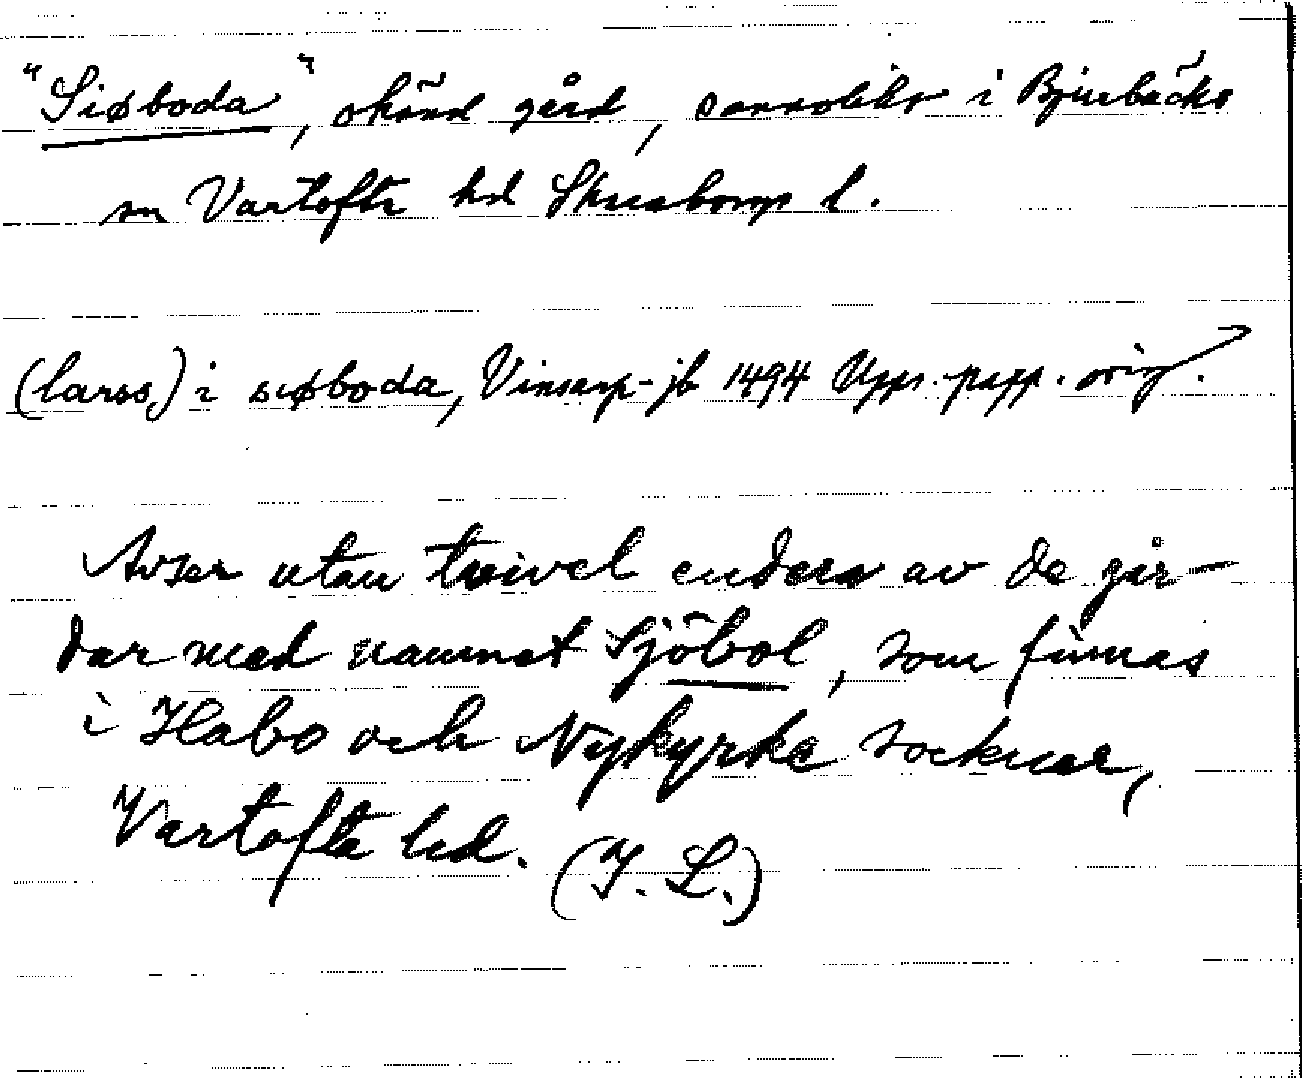 "Siøboda", okänd gård, sannolikt i Bjurbäcks
sn Vartofta hd Skaraborgs l.
(larss) i siøboda, Vinsarp-jb 1494 Upps. papp. orig.
Avser utan tvivel endera av de går-
dar med namnet Sjöbol, som finnas
i Habo och Nykyrke socknar,
Vartofta hd. (I. L.)